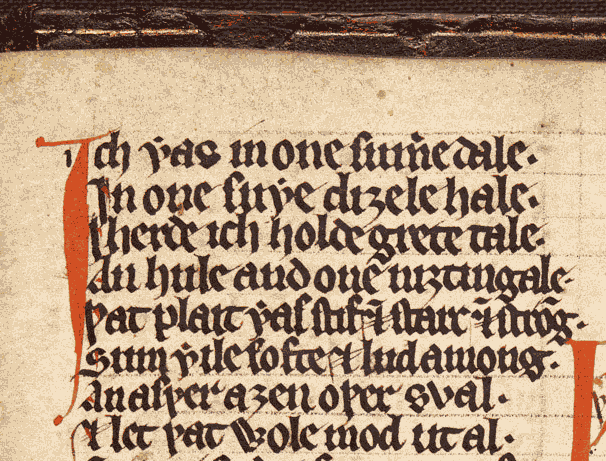 Ich ƿas in one sum̄e dale.
In one suþe diȝele hale.
Iherde ich holde grete tale.
An hule and one niȝtingale.
Þat plait ƿas stif ⁊ starc ⁊ strōg.
Sum ƿile softe ⁊ lud among.
An aiþer aȝen oþer sval.
⁊ let þat wole mod ut al.